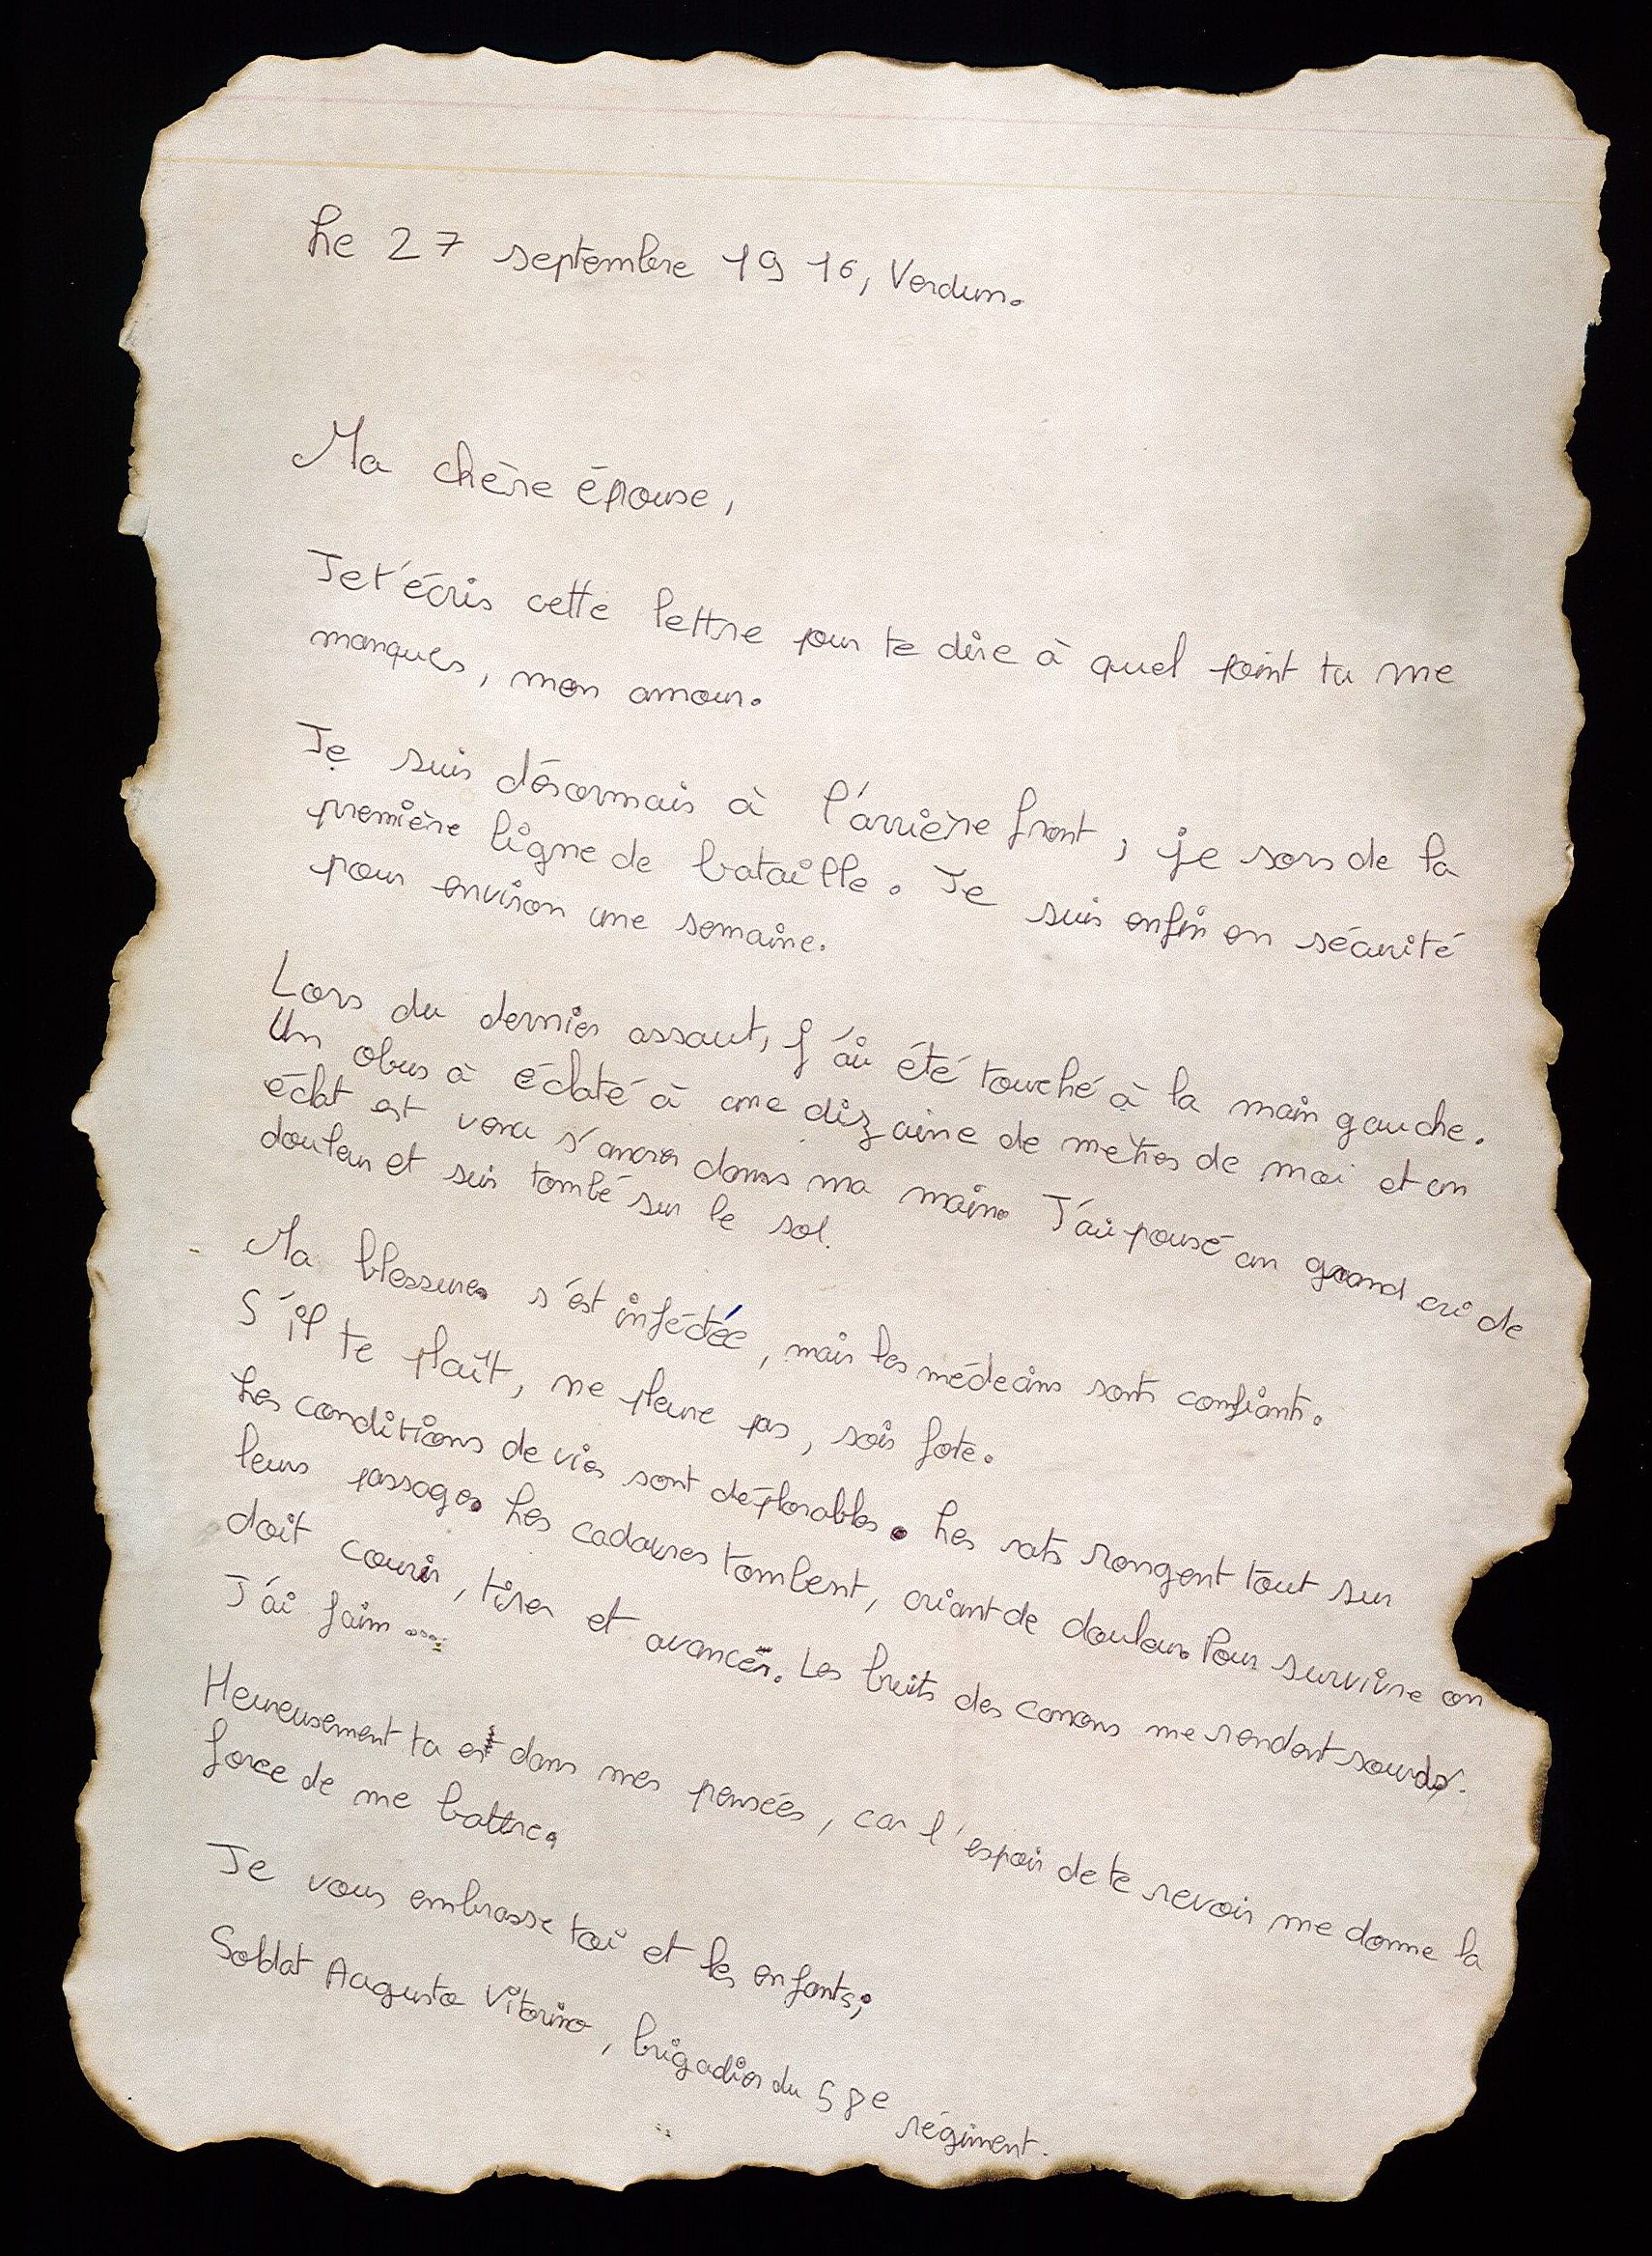 Le 27 septembre 1916, Verdun.
Ma chère épouse,
Je t'écris cette lettre pour te dire à quel point tu me
manques, mon amour.
Je suis désormais à l'arrière front, je sors de la
première ligne de bataille. Je suis enfin en sécurité
pour environ une semaine.
Lors du dernier assaut, j'ai été touché à la main gauche.
Un obus à éclaté à une dizaine de mètres de moi et un
éclat est venu s'ancrer dans ma main. J'ai poussé un grand cri de
douleur et suis tombé sur le sol.
Ma blessure s'est infectée, mais les médecins sont confiants.
S'il te plaît, ne pleure pas, sois forte.
Les conditions de vies sont déplorables. Les rats rongent tout sur
leurs passages. Les cadavres tombent, criant de douleur. Pour survivre on
doit courir, tirer et avancer. Les bruits des canons me rendent sourd.
J'ai faim ....
Heureusement tu es dans mes pensées, car l'espoir de te revoir me donne la
force de me battre.
Je vous embrasse toi et les enfants;
Soldat Augusto Vitorino, brigadier du 58e régiment.